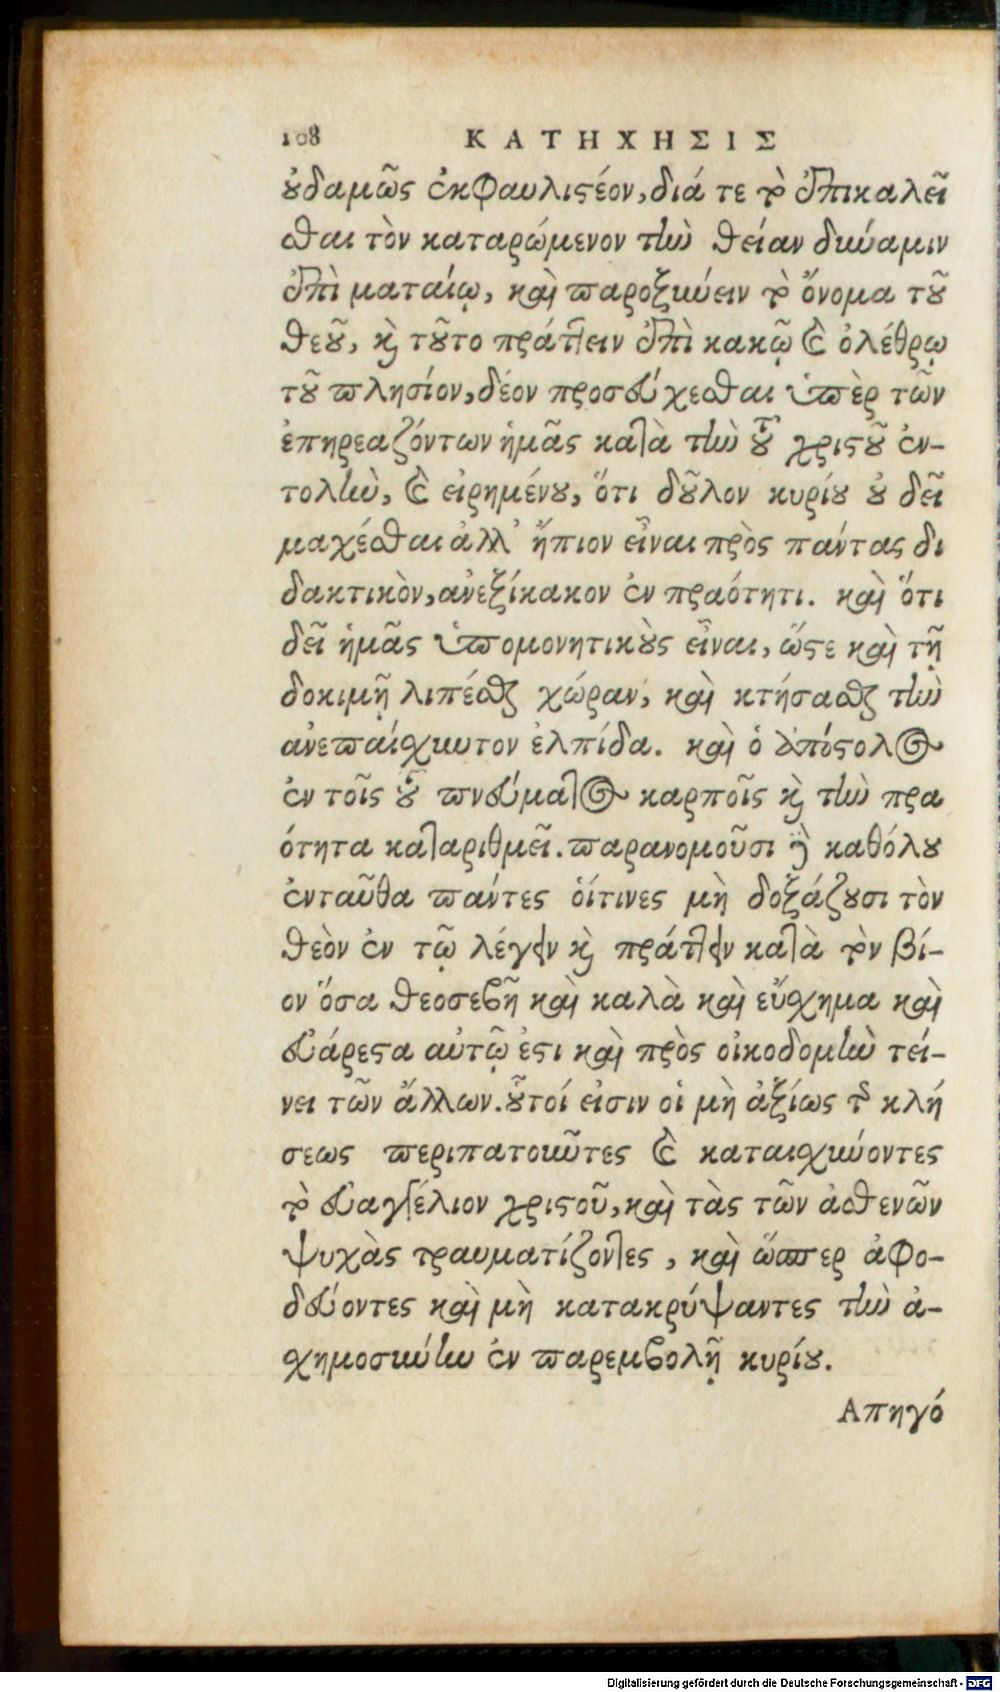 108 ΚΑΤΗΧΗΣΙΣ
ȣ̓δαμῶς ἐκφαυλιστέον, διά τε τὸ ἐπικαλεῖ
σθαι τὸν καταρώμενον τὴν θείαν δύναμιν
ἐπὶ ματαίῳ, καὶ παροξύνειν τὸ ὄνομα τȣ͂
θεȣ͂, καὶ τȣ͂το πράττειν ἐπὶ κακῷ καὶ ὀλέθρῳ
τȣ͂ πλησίον, δέον προσεύχεσθαι ὑπὲρ τῶν
ἐπηρεαζόντων ἡμᾶς κατὰ τὴν τȣ͂ χριστȣ͂ ἐν-
τολὴν, καὶ εἰρημένȣ, ὅτι δȣ͂λον κυρίȣ ȣ̓ δεῖ
μαχέσθαι ἀλλ’ ἤπιον εἶναι πρὸς πάντας δι
δακτικὸν, ἀνεξίκακον ἐν πραότητι. καὶ ὅτι
δεῖ ἡμᾶς ὑπομονητικȣ̀ς εἶναι, ὥστε καὶ τῇ
δοκιμῇ λιπέσθαι χώραν, καὶ κτήσασθαι τὴν
ἀνεπαίσχυντον ἐλπίδα. καὶ ὁ ἀπόστολος
ἐν τοῖς τȣ͂ πνεύματος καρποῖς καὶ τὴν πρα
ότητα καταριθμεῖ. παρανομοῦσι δὲ καθόλȣ
ἐνταῦθα πάντες οἵτινες μὴ δοξάζȣσι τὸν
θεὸν ἐν τῷ λέγειν καὶ πράττειν κατὰ τὸν βί-
ον ὅσα θεοσεβῆ καὶ καλὰ καὶ εὔσχημα καὶ
εὐάρεστα αὐτῷ ἐστι καὶ πρὸς οἰκοδομὴν τεί-
νει τῶν ἄλλων. ȣ̃τοί εἰσιν οἱ μὴ ἀξίως τῆς κλή
σεως περιπατοῦντες καὶ καταισχύνοντες
τὸ εὐαγγέλιον χριστοῦ, καὶ τὰς τῶν ἀσθενῶν
ψυχὰς τραυματίζοντες, καὶ ὥσπερ ἀφο-
δεύοντες καὶ μὴ κατακρύψαντες τὴν ἀ-
σχημοσύνην ἐν παρεμβολῇ κυρίȣ.
Απηγό
Digitalisierung gefördert durch die Deutsche Forschungsgemeinschaft - DFG